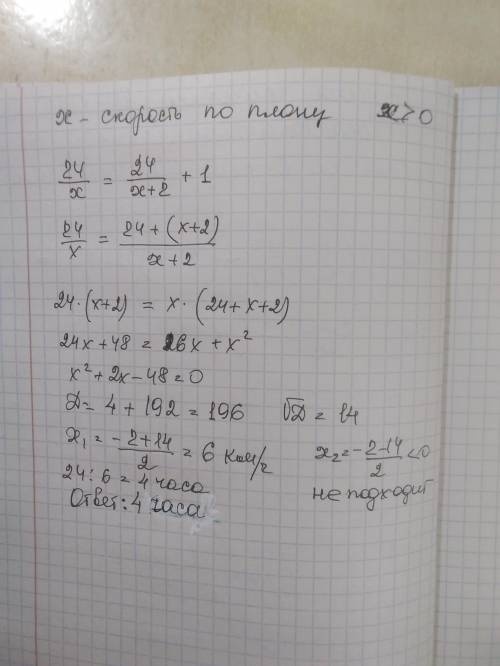 x - скорость по плану x > 0
24/x = 24/(x+2) + 1
24/x = (24+(x+2))/(x+2)
24·(x+2) = x·(24+x+2)
24x+48 = 26x+x²
x²+2x-48=0
D= 4+192=196 √D = 14
x₁ = (-2+14)/2 = 6 км/г x₂ = (-2-14)/2 < 0
24:6=4 часа не подходит
Ответ: 4 часа